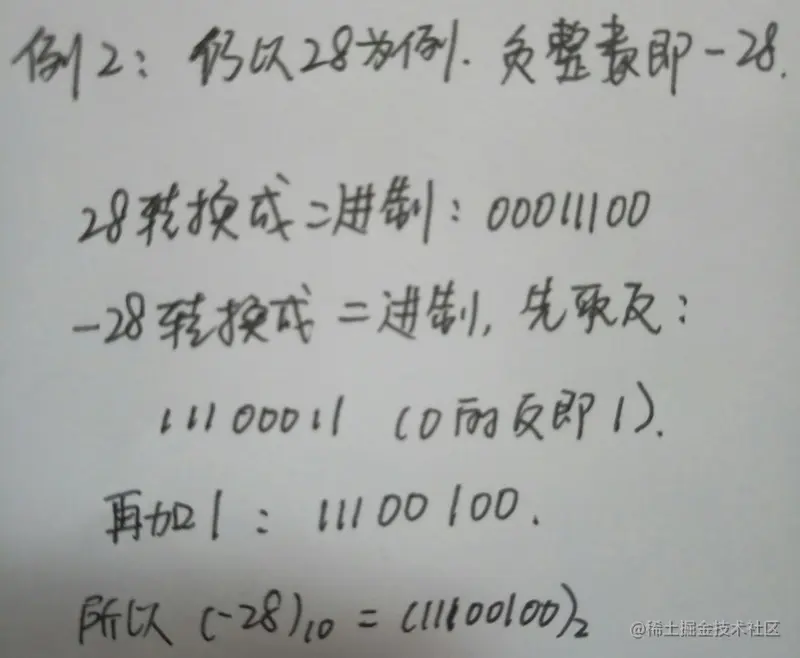 例2：仍以28为例. 负整数即-28.
28转换成二进制：00011100
-28转换成二进制, 先取反：
11100011 (0的反即1).
再加1：11100100.
所以 (-28)10 = (11100100)2
@稀土掘金技术社区